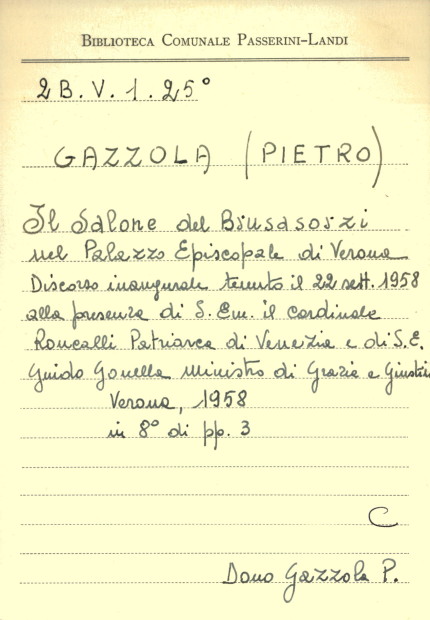 BIBLIOTECA COMUNALE PASSERINI-LANDI
2 B. V. 1. 25°
GAZZOLA (PIETRO)
Il Salone del Brusasorzi
nel Palazzo Episcopale di Verona
Discorso inaugurale tenuto il 22 sett. 1958
alla presenza di S. Em. il cardinale
Roncalli Patriarca di Venezia e di S.E.
Guido Gonella Ministro di Grazia e Giustizi
Verona, 1958
in 8° di pp. 3
C
Dono Gazzola P.